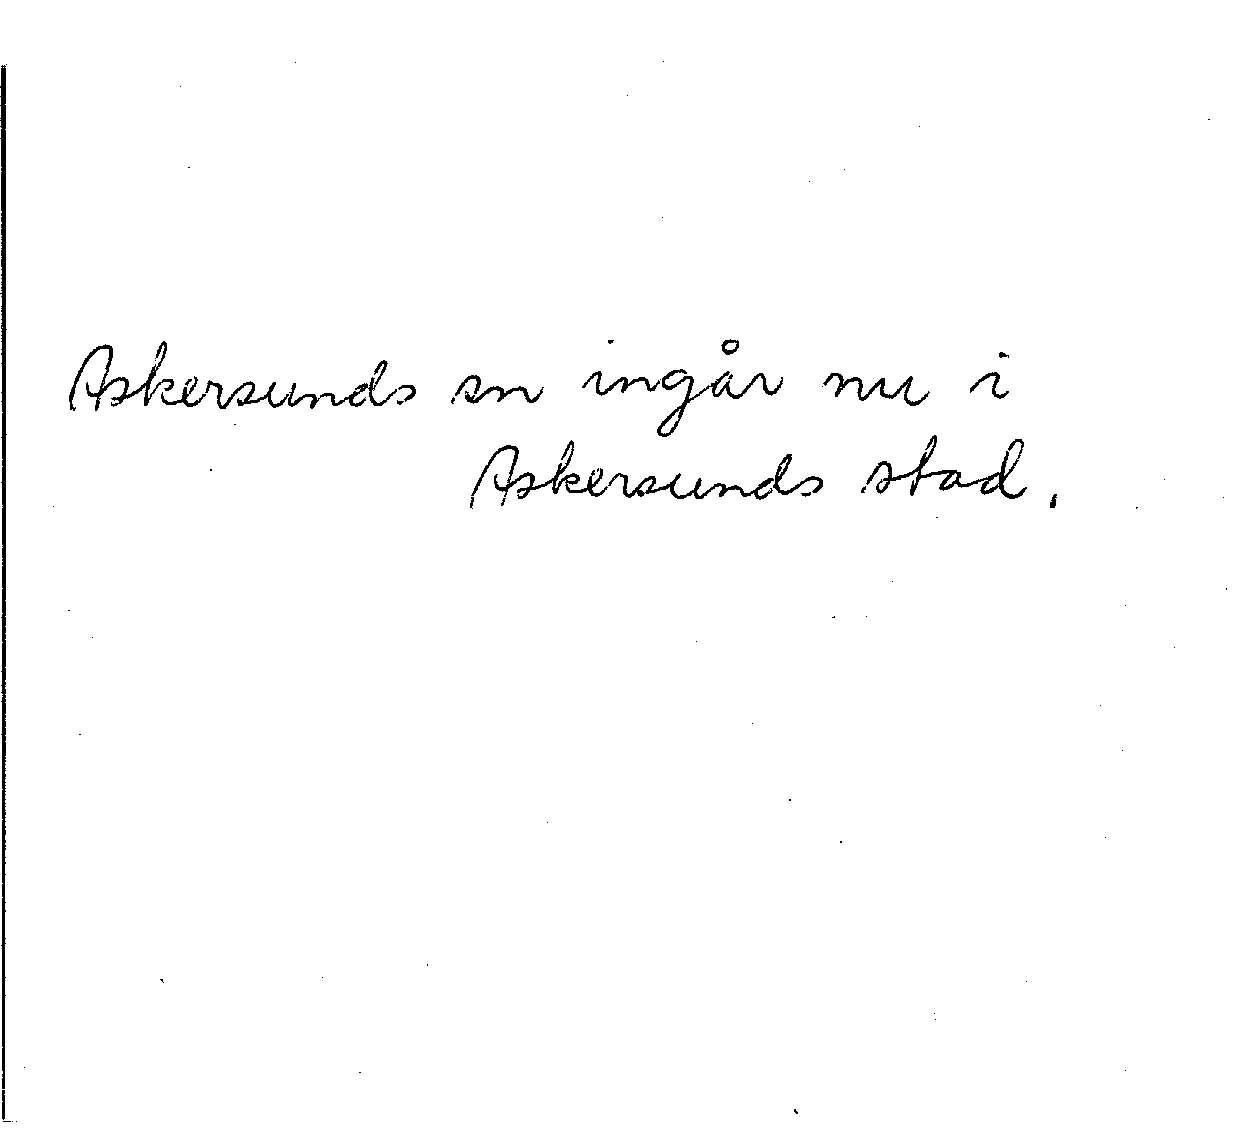 Askersunds sn ingår nu i
Askersunds stad.